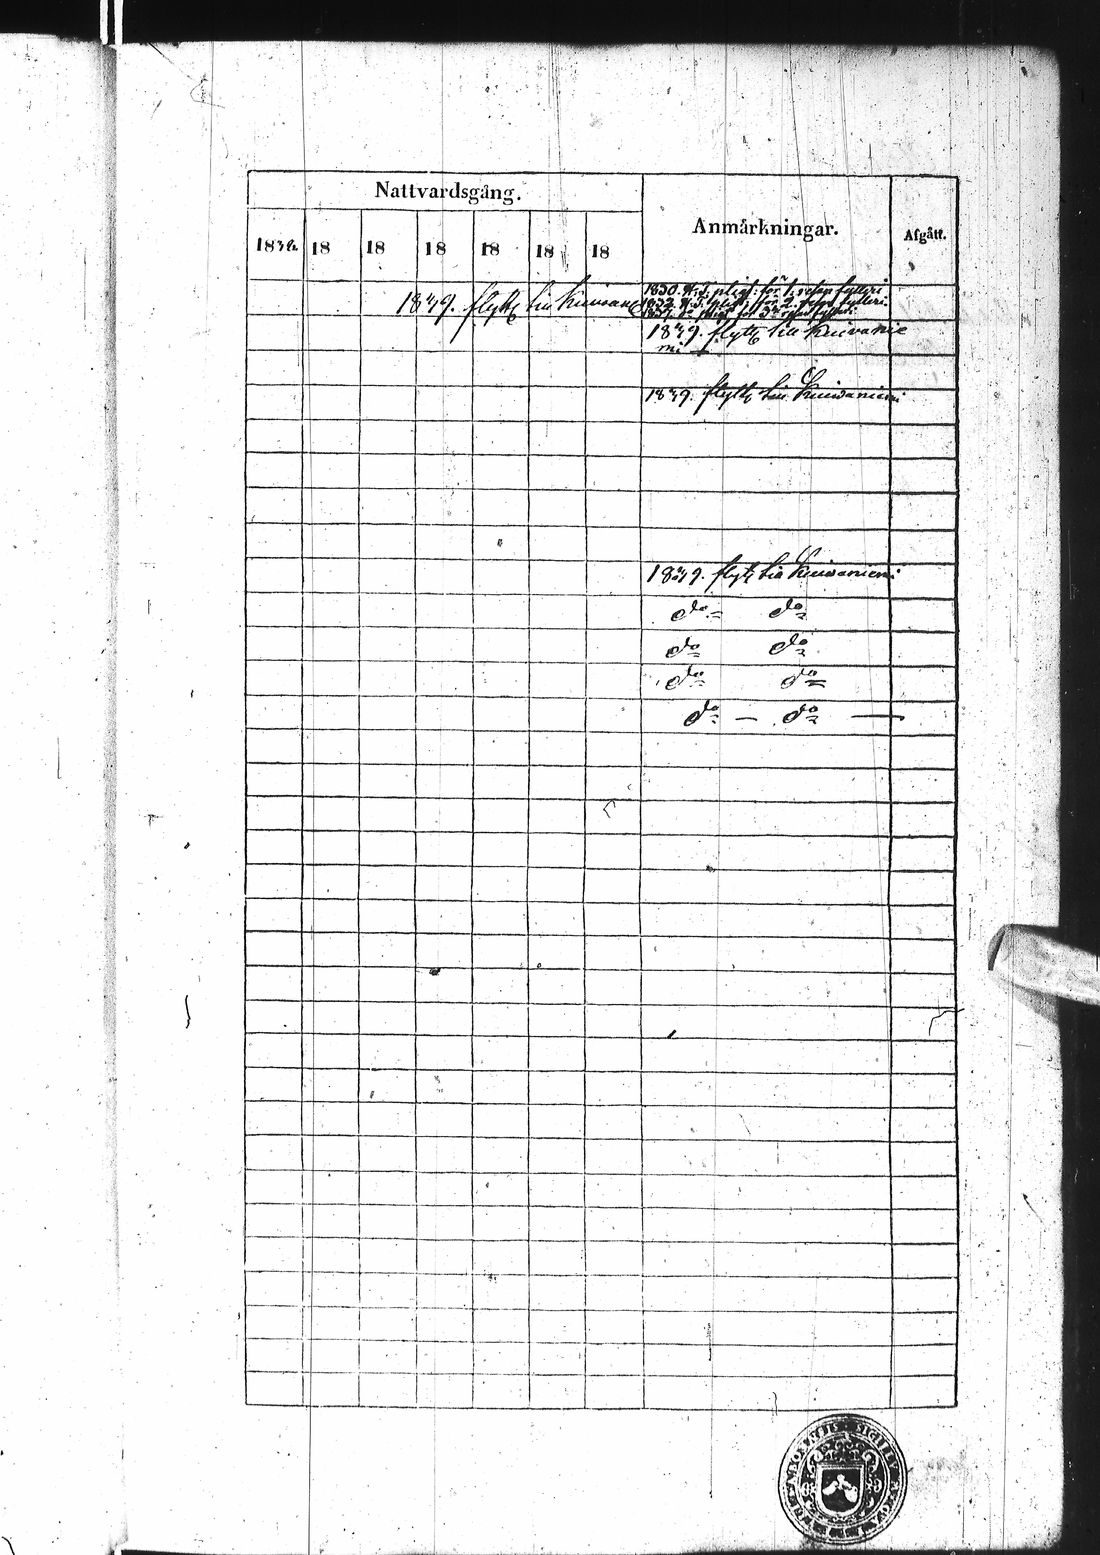 Nattvardsgång.
Anmärkningar.
Afgått.
18
18
18
18
18
18
1839. flytt till Kuivanie
1830. pligt. för 1. resan fylleri
1832. pligt. för 2. resan fylleri.
för 3. resan fylleri.
1839. flytt till Kuivanie
mi
1839. flytt till Kuivaniemi
1839. flytt till Kuivaniemi
do do
do do
do do
do — do —